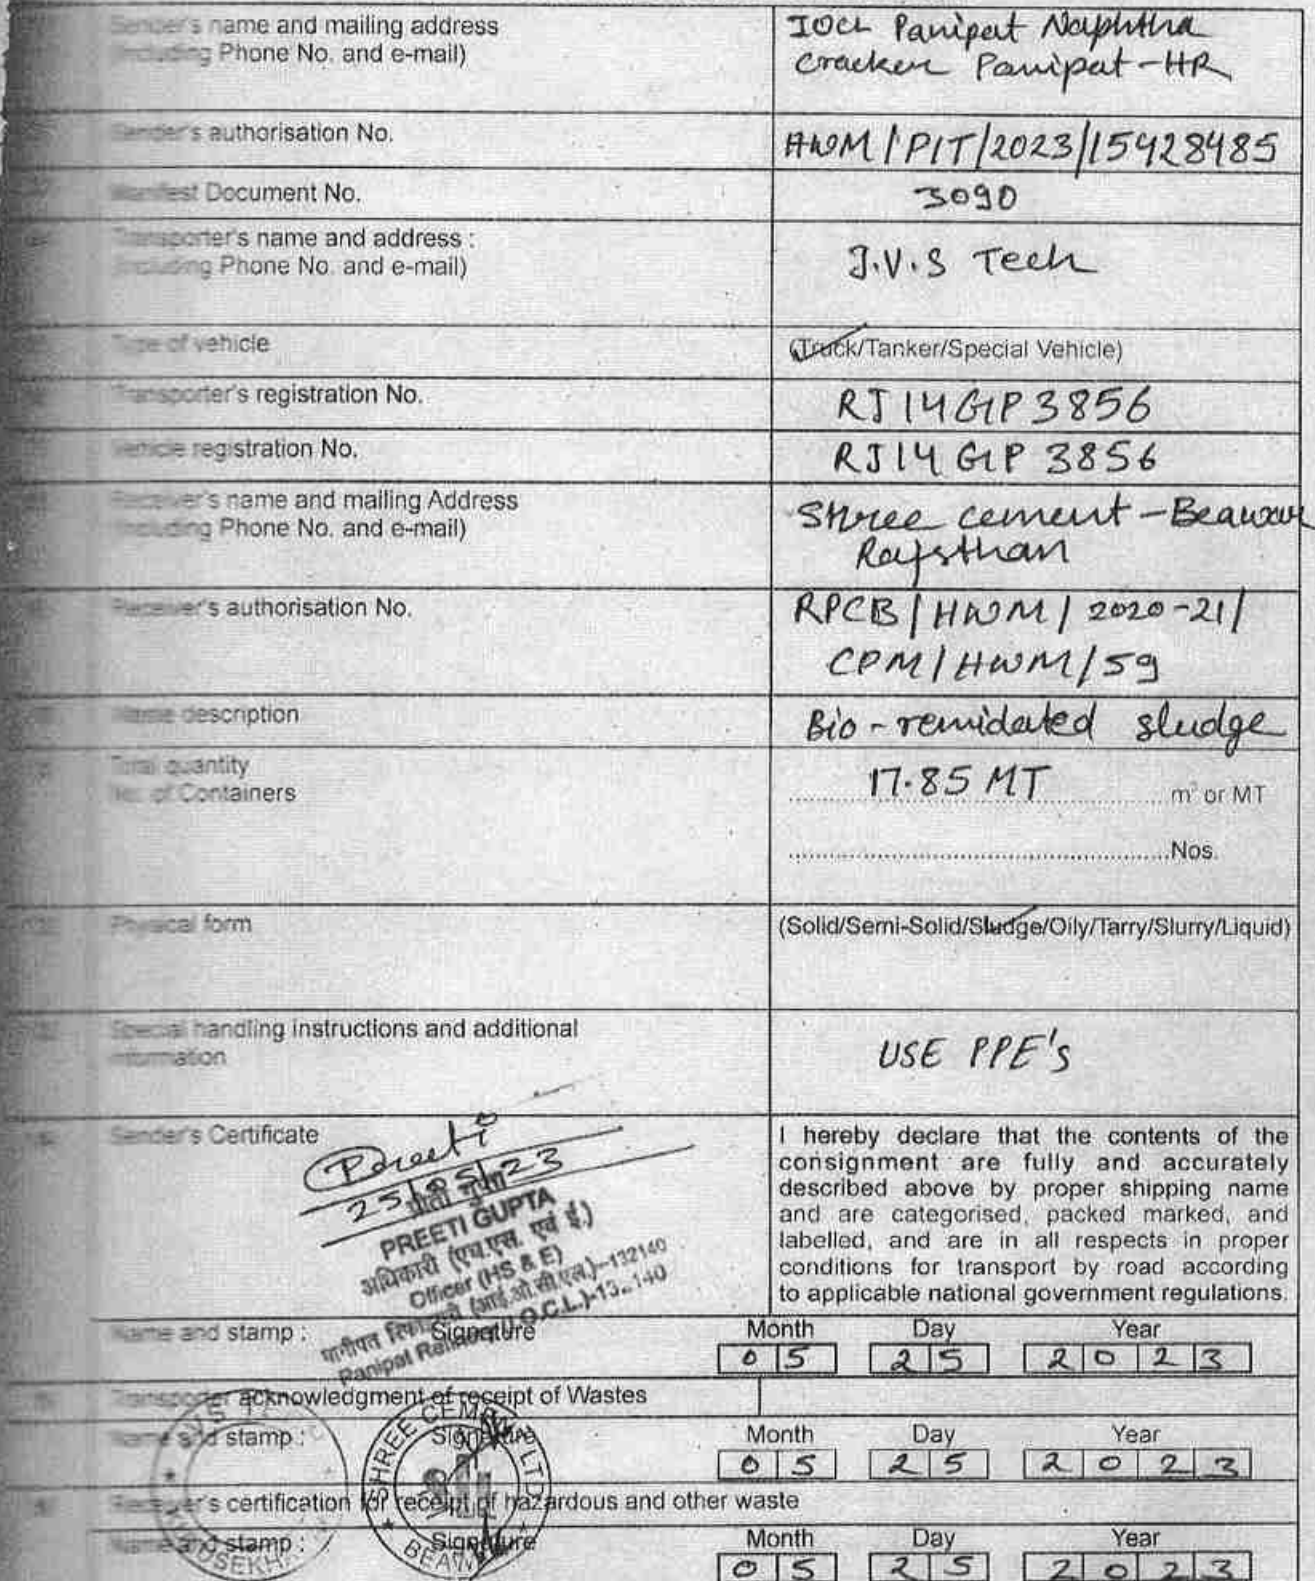 Sender's name and mailing address
(including Phone No. and e-mail)
IOCL Panipat Naphtha
Cracker Panipat-HR
Sender's authorisation No.
HWM/PIT/2023/15428485
Manifest Document No.
3090
Transporter's name and address :
(including Phone No. and e-mail)
J.V.S Tech
Type of vehicle
(Truck/Tanker/Special Vehicle)
Transporter's registration No.
RJ14GP3856
Vehicle registration No.
RJ14 GP 3856
Receiver's name and mailing Address
(including Phone No. and e-mail)
Shree cement - Beawar
Rajsthan
Receiver's authorisation No.
RPCB/HWM/2020-21/
CPM/HWM/59
description
Bio-remidated sludge
Total quantity
No. of Containers
17.85 MT m³ or MT
Nos.
Physical form
(Solid/Semi-Solid/Sludge/Oily/Tarry/Slurry/Liquid)
Special handling instructions and additional
information
USE PPE's
Sender's Certificate
I hereby declare that the contents of the
consignment are fully and accurately
described above by proper shipping name
and are categorised, packed marked, and
labelled, and are in all respects in proper
conditions for transport by road according
to applicable national government regulations.
Preeti
25/05/23
PREETI GUPTA
अधिकारी (एच.एस. एवं ई.)
Officer (HS & E)
पानीपत रिफाइनरी (आई.ओ.सी.एल.)-132140
Panipat Refinery (I.O.C.L.)-132140
Name and stamp : Signature
Month Day Year
05 25 2023
Transporter acknowledgment of receipt of Wastes
Name and stamp : Signature
Month Day Year
05 25 2023
SHREE CEMENT LTD
BEAWAR
Receiver's certification for receipt of hazardous and other waste
Name and stamp : Signature
Month Day Year
05 25 2023